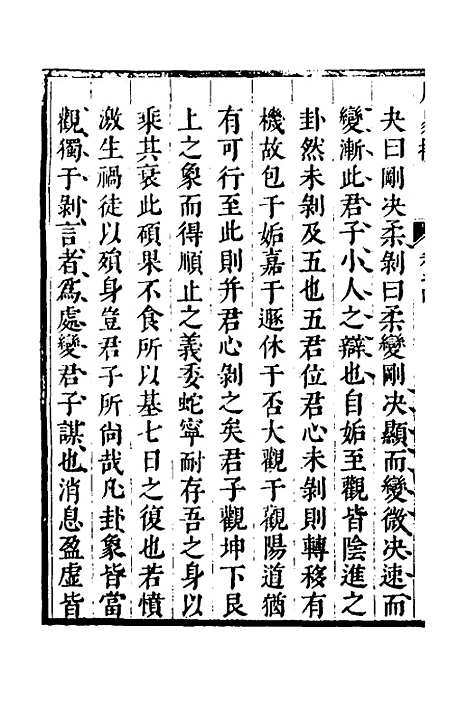 夬曰剛決柔剝曰柔變剛決顯而變微決速而
變漸此君子小人之辯也自姤至觀皆陰進之
卦然未剝及五也五君位君心未剝則轉移有
機故包于姤嘉于遯休于否大觀于觀陽道猶
有可行至此則并君心剝之矣君子觀坤下艮
上之象而得順止之義委蛇寧耐存吾之身以
乘其衰此碩果不食所以基七日之復也若憤
激生禍徒以殞身豈君子所尚哉凡卦象皆當
觀獨于剝言者爲處變君子謀也消息盈虛皆